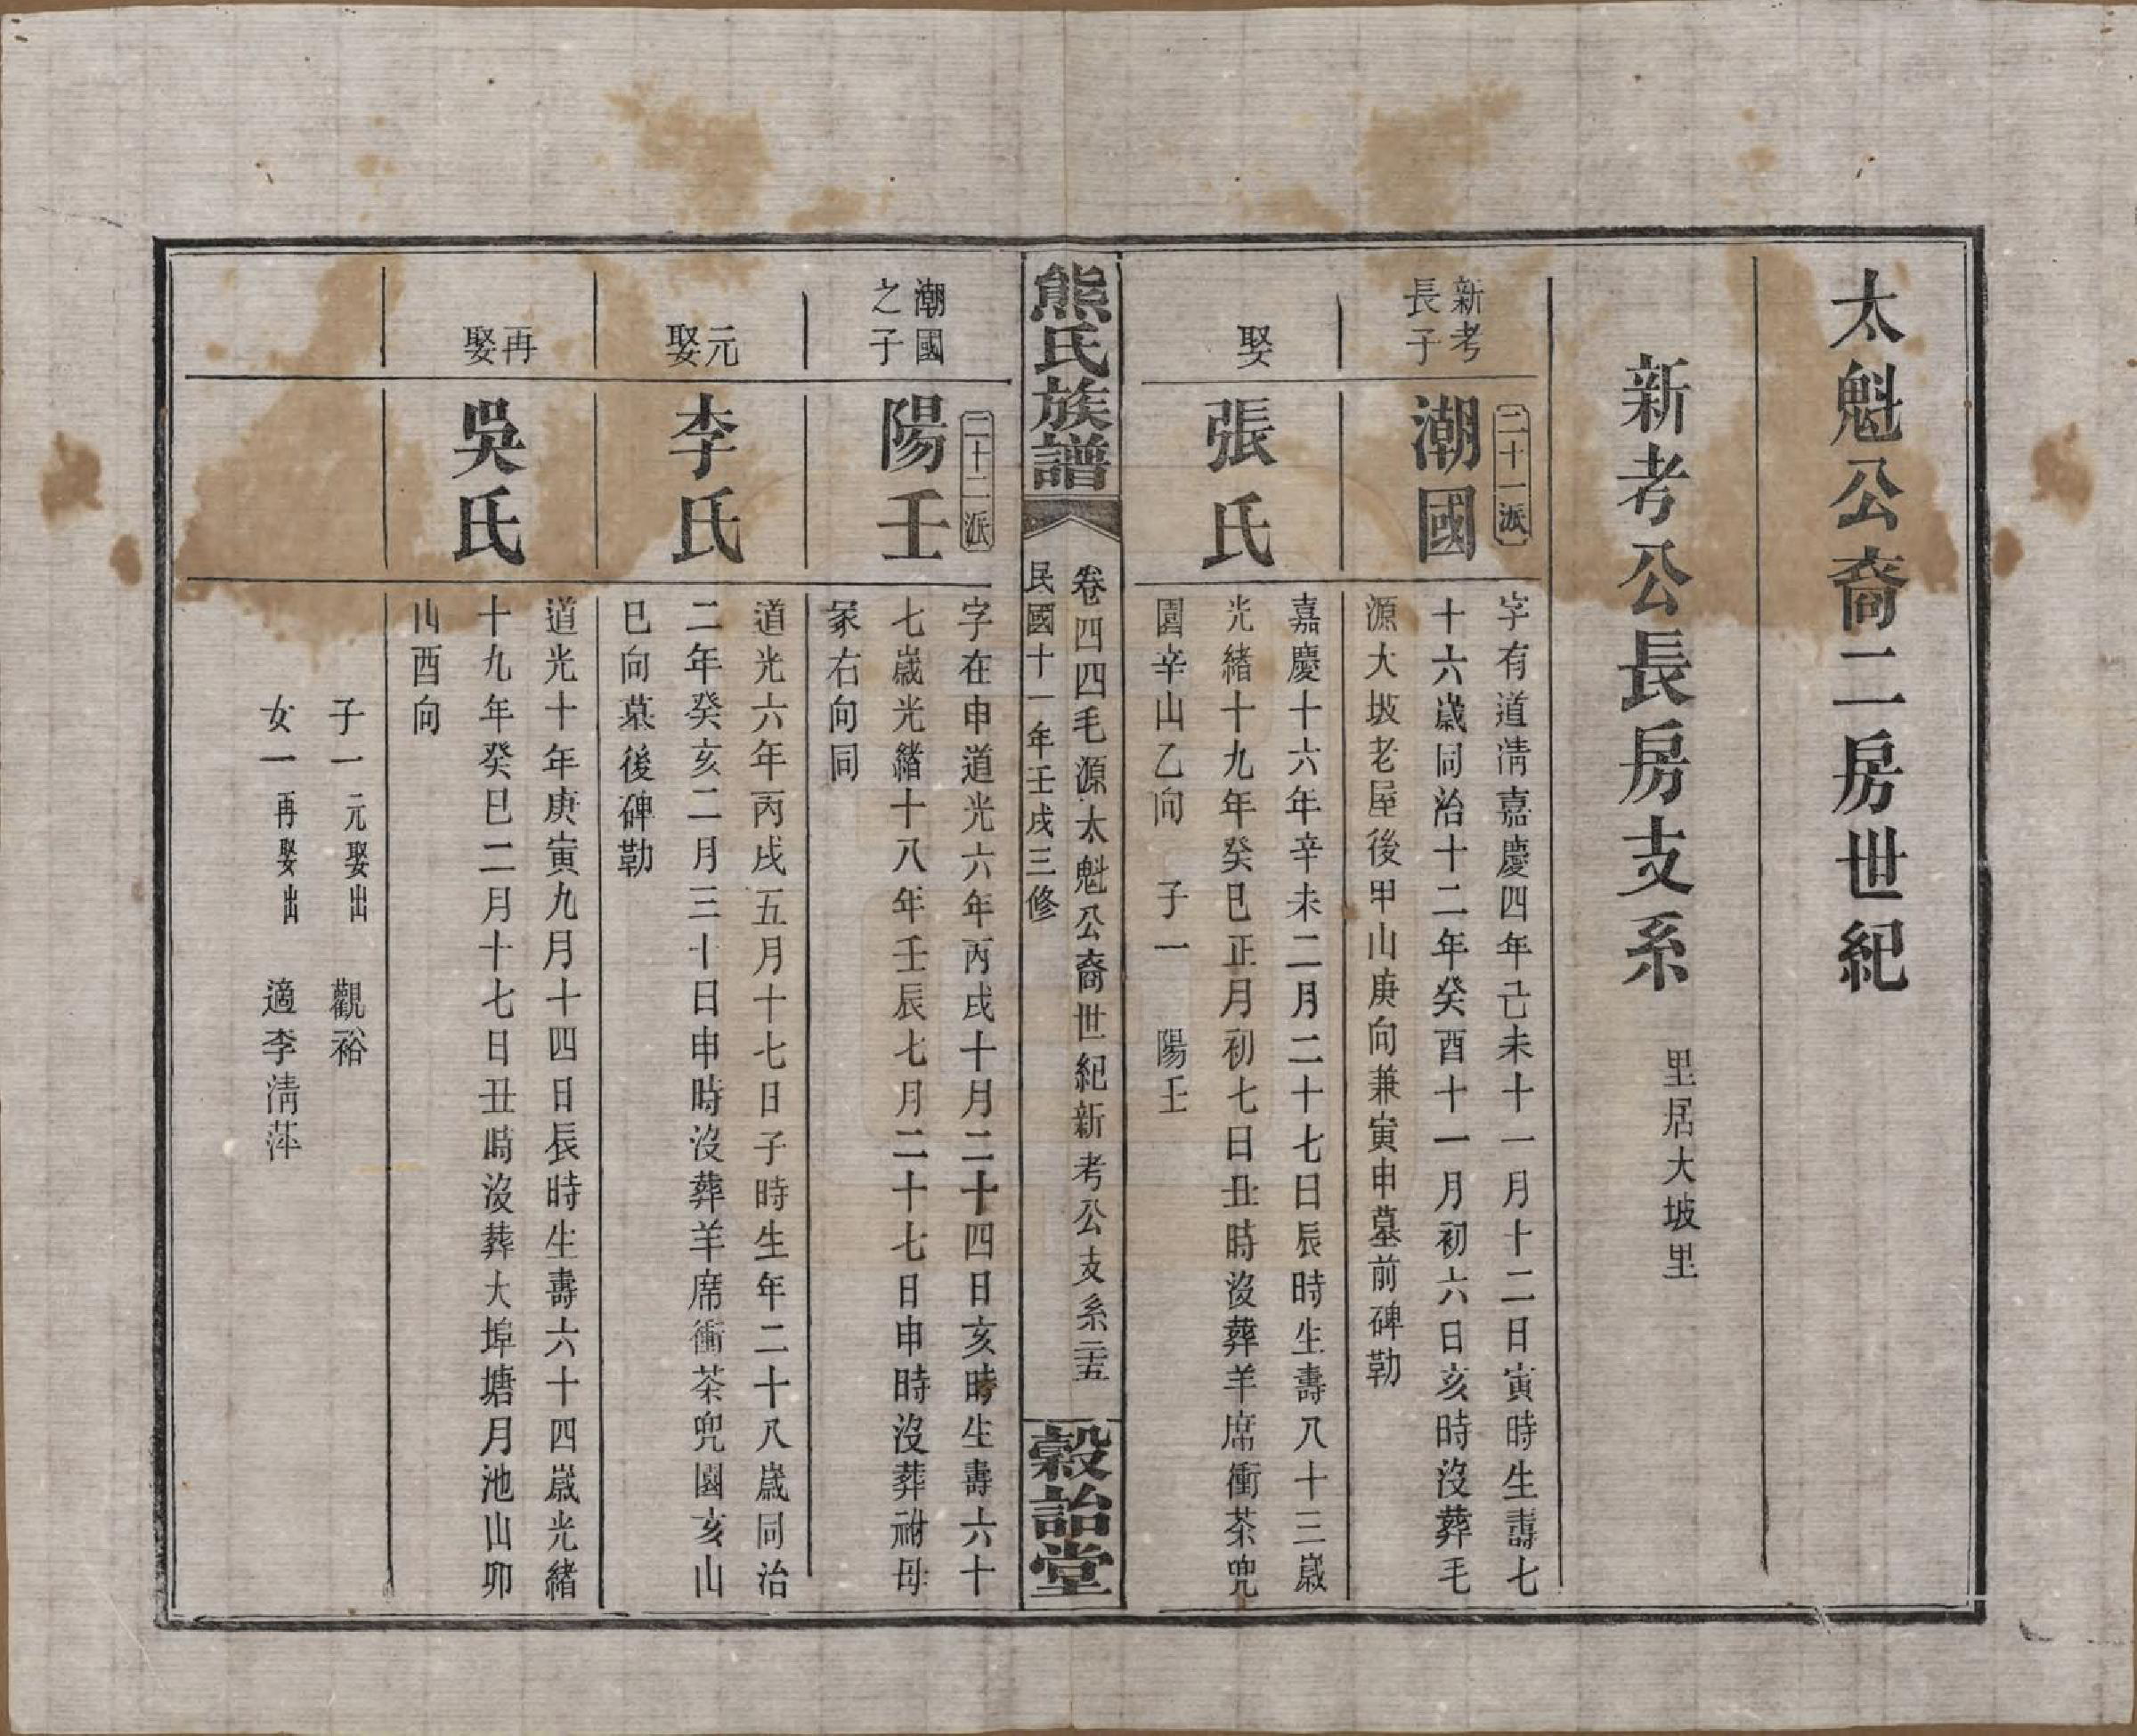 太魁公裔二房世紀
新考公長房支系
里居大坡里
新考
長子
二十一派
潮國
字有道清嘉慶四年己未十一月十二日寅時生壽七
十六歲同治十二年癸酉十一月初六日亥時沒葬毛
源大坡老屋後甲山庚向兼寅申墓前碑勒
娶
張氏
嘉慶十六年辛未二月二十七日辰時生壽八十三歲
光緒十九年癸巳正月初七日丑時沒葬羊席衝茶兜
園辛山乙向 子一 陽壬
熊氏族譜
卷四四毛源太魁公裔世紀新考公支系三五
民國十一年壬戌三修
穀詒堂
潮國
之子
二十二派
陽壬
字在申道光六年丙戌十月二十四日亥時生壽六十
七歲光緒十八年壬辰七月二十七日申時沒葬祔母
冢右向同
元娶
李氏
道光六年丙戌五月十七日子時生年二十八歲同治
二年癸亥二月三十日申時沒葬羊席衝茶兜園亥山
巳向墓後碑勒
再娶
吳氏
道光十年庚寅九月十四日辰時生壽六十四歲光緒
十九年癸巳二月十七日丑時沒葬大埠塘月池山卯
山酉向
子一元娶出 觀裕
女一再娶出 適李清萍